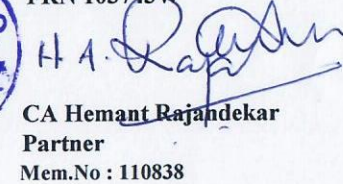 H. A.
CA Hemant Rajandekar
Partner
Mem.No : 110838